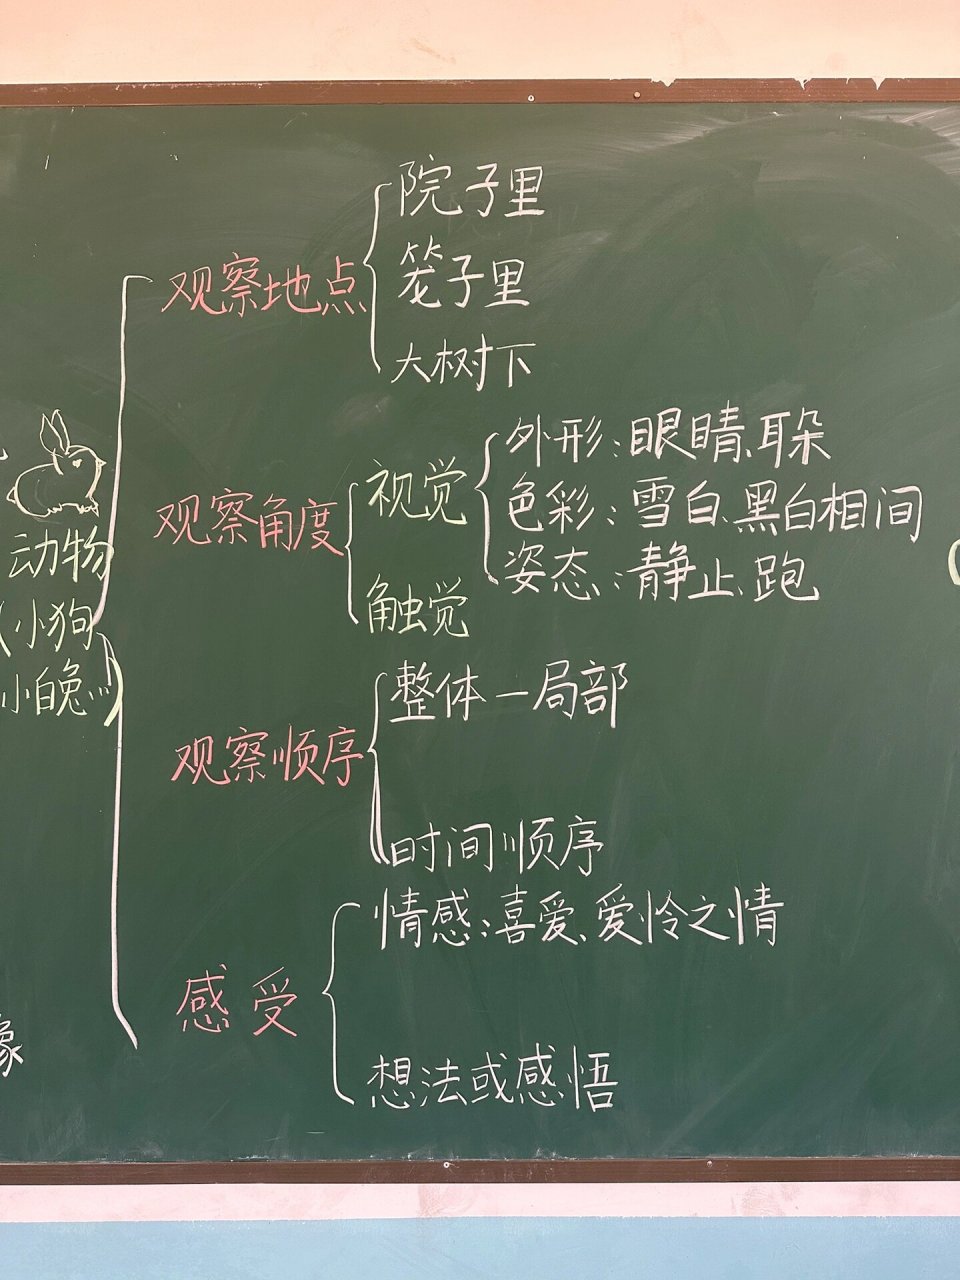 观察地点
院子里
笼子里
大树下
动物
(小狗
小白兔…)
观察角度
视觉
外形:眼睛、耳朵
色彩:雪白、黑白相间
姿态:静止、跑
触觉
观察顺序
整体一局部
时间顺序
感受
情感:喜爱、爱怜之情
想法或感悟